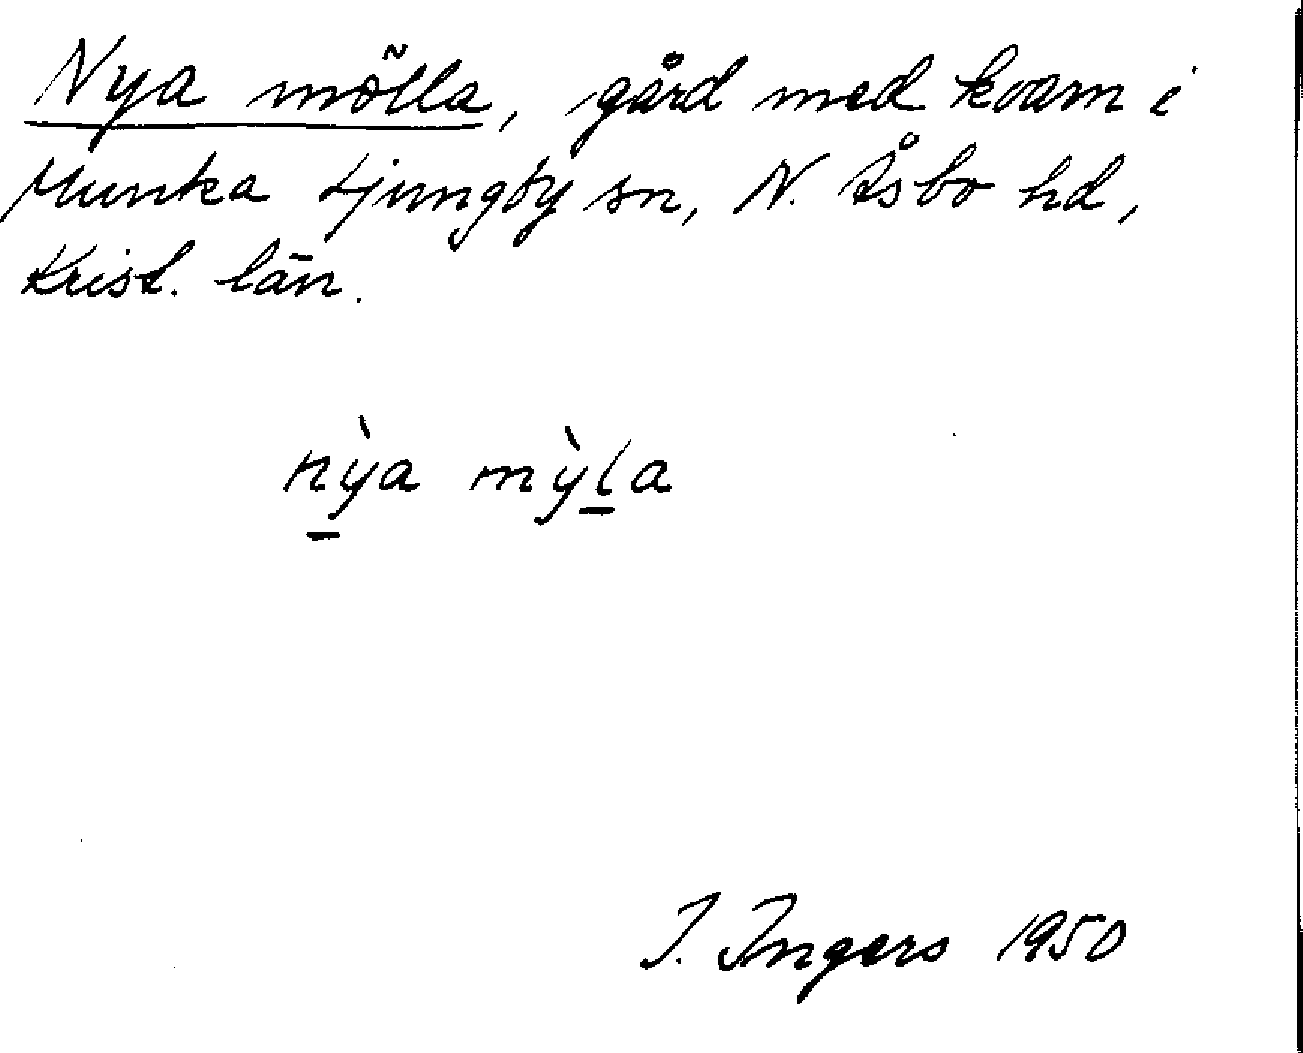 Nya mölla, gård med kvarn i
Munka Ljungby sn, N. Åsbo hd,
Krist. län.
nỳa mỳla
I. Ingers 1950